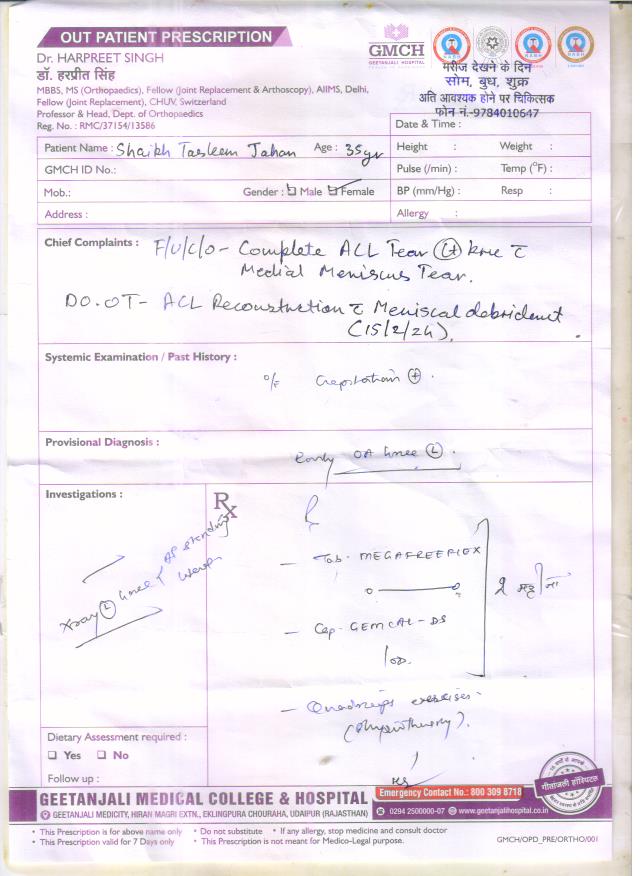 OUT PATIENT PRESCRIPTION
Dr. HARPREET SINGH
डॉ. हरप्रीत सिंह
MBBS, MS (Orthopaedics), Fellow (Joint Replacement & Arthoscopy), AIIMS, Delhi,
Fellow (Joint Replacement), CHUV, Switzerland
Professor & Head, Dept. of Orthopaedics
Reg. No. : RMC/37154/13586
GMCH
GEETANJALI HOSPITAL
मरीज देखने के दिन
सोम, बुध, शुक्र
अति आवश्यक होने पर चिकित्सक
फोन नं.-9784010647
Date & Time :
Patient Name : Shaikh Tasleem Jahan Age : 35yr
Height : Weight :
GMCH ID No.:
Pulse (/min) : Temp (°F) :
Mob.: Gender : Male Female
BP (mm/Hg) : Resp :
Address :
Allergy :
Chief Complaints : F/U/C/O- Complete ACL Tear (L) knee c̄
Medial Meniscus Tear.
DO.OT- ACL Reconstruction c̄ Meniscal debrident
(15/2/24).
Systemic Examination / Past History :
o/E Crepitation (+).
Provisional Diagnosis :
Early OA knee (L).
Investigations :
Xray (L) knee AP standing
Rx
- Tab. MEGAFREEFLEX
- Cap. GEMCAL-DS
1 OD.
2 महीना
- Quadriceps exercises.
(Physiotherapy).
Dietary Assessment required :
Yes No
Follow up :
गीतांजली हॉस्पिटल
GEETANJALI MEDICAL COLLEGE & HOSPITAL
Emergency Contact No.: 800 309 8718
GEETANJALI MEDICITY, HIRAN MAGRI EXTN., EKLINGPURA CHOURAHA, UDAIPUR (RAJASTHAN)
0294 2500000-07 www.geetanjalihospital.co.in
• This Prescription is for above name only • Do not substitute • If any allergy, stop medicine and consult doctor
• This Prescription valid for 7 Days only • This Prescription is not meant for Medico-Legal purpose.
GMCH/OPD_PRE/ORTHO/001